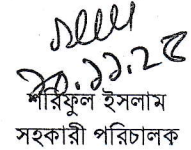 ২০.১১.২৫
শরিফুল ইসলাম
সহকারী পরিচালক